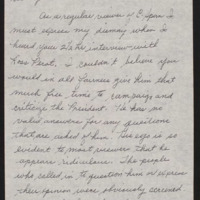 As a regular viewer of C-Span I
must express my dismay when I
heard your 2½ hr interview with
Ross Perot. I couldn't believe you
would in all fairness give him that
much free time to campaign and
critize the President. He has no
valid answers for any questions
that are asked of him. His ego is so
evident to most viewers that he
appears ridiculous. The people
who called in to question him or express
their opinion were obviously screened